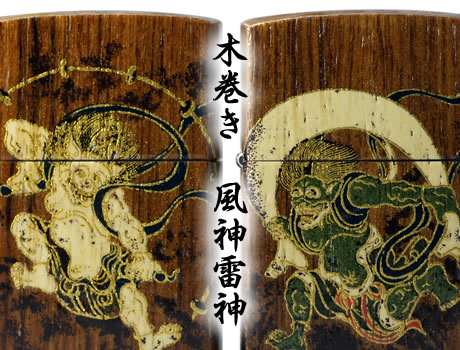 木巻き 風神雷神